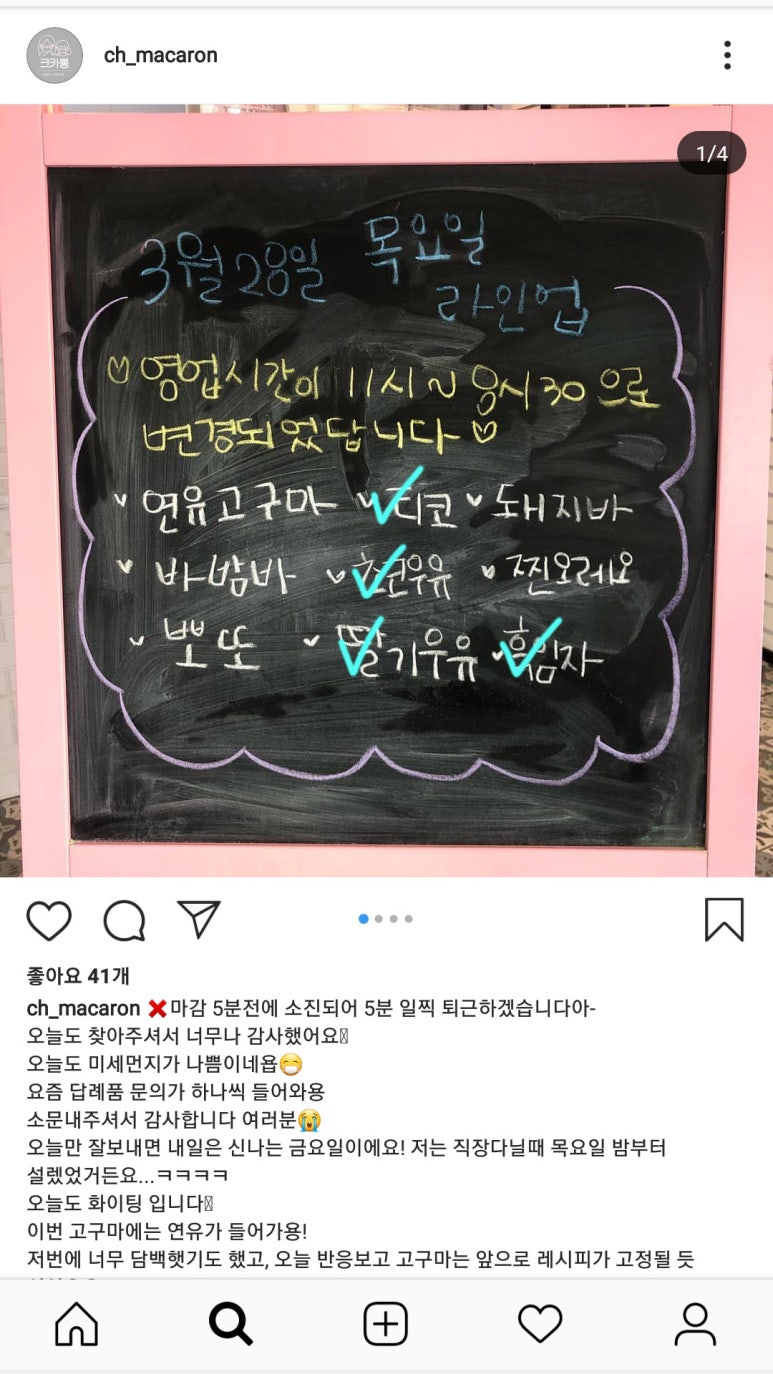 크카롱
ch_macaron
1/4
3월 28일 목요일
라인업
♡ 영업시간이 11시 ~ 8시 30 으로
변경되었답니다 ♡
연유고구마 티코 돼지바
바밤바 우유 찐오레오
뽀또 딸기우유 흑임자
좋아요 41개
ch_macaron ❌마감 5분전에 소진되어 5분 일찍 퇴근하겠습니다아-
오늘도 찾아주셔서 너무나 감사했어요
오늘도 미세먼지가 나쁨이네욥😷
요즘 답례품 문의가 하나씩 들어와용
소문내주셔서 감사합니다 여러분😭
오늘만 잘보내면 내일은 신나는 금요일이에요! 저는 직장다닐때 목요일 밤부터
설렜었거든요...ㅋㅋㅋㅋ
오늘도 화이팅 입니다
이번 고구마에는 연유가 들어가용!
저번에 너무 담백햇기도 했고, 오늘 반응보고 고구마는 앞으로 레시피가 고정될 듯